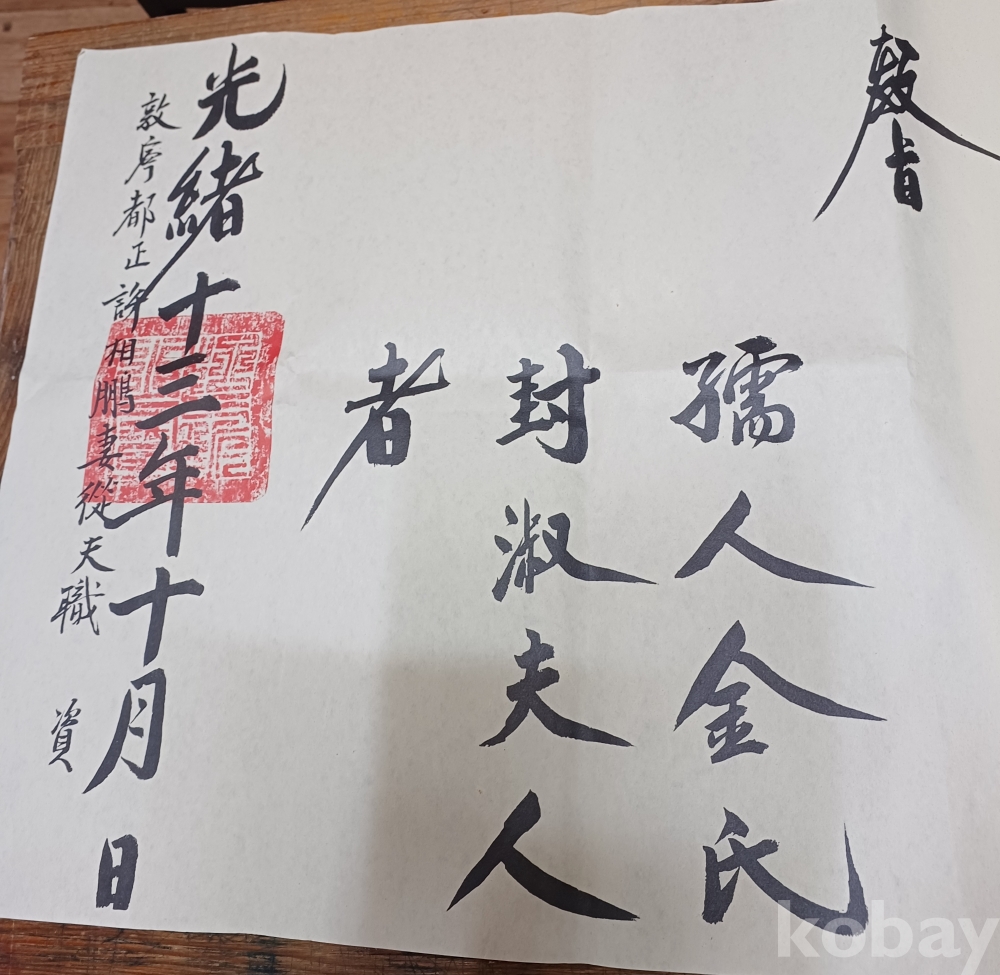 敎旨
孺人金氏
封淑夫人
者
光緒十二年十月 日
敦寧都正許相鵬妻從夫職 資
kobay